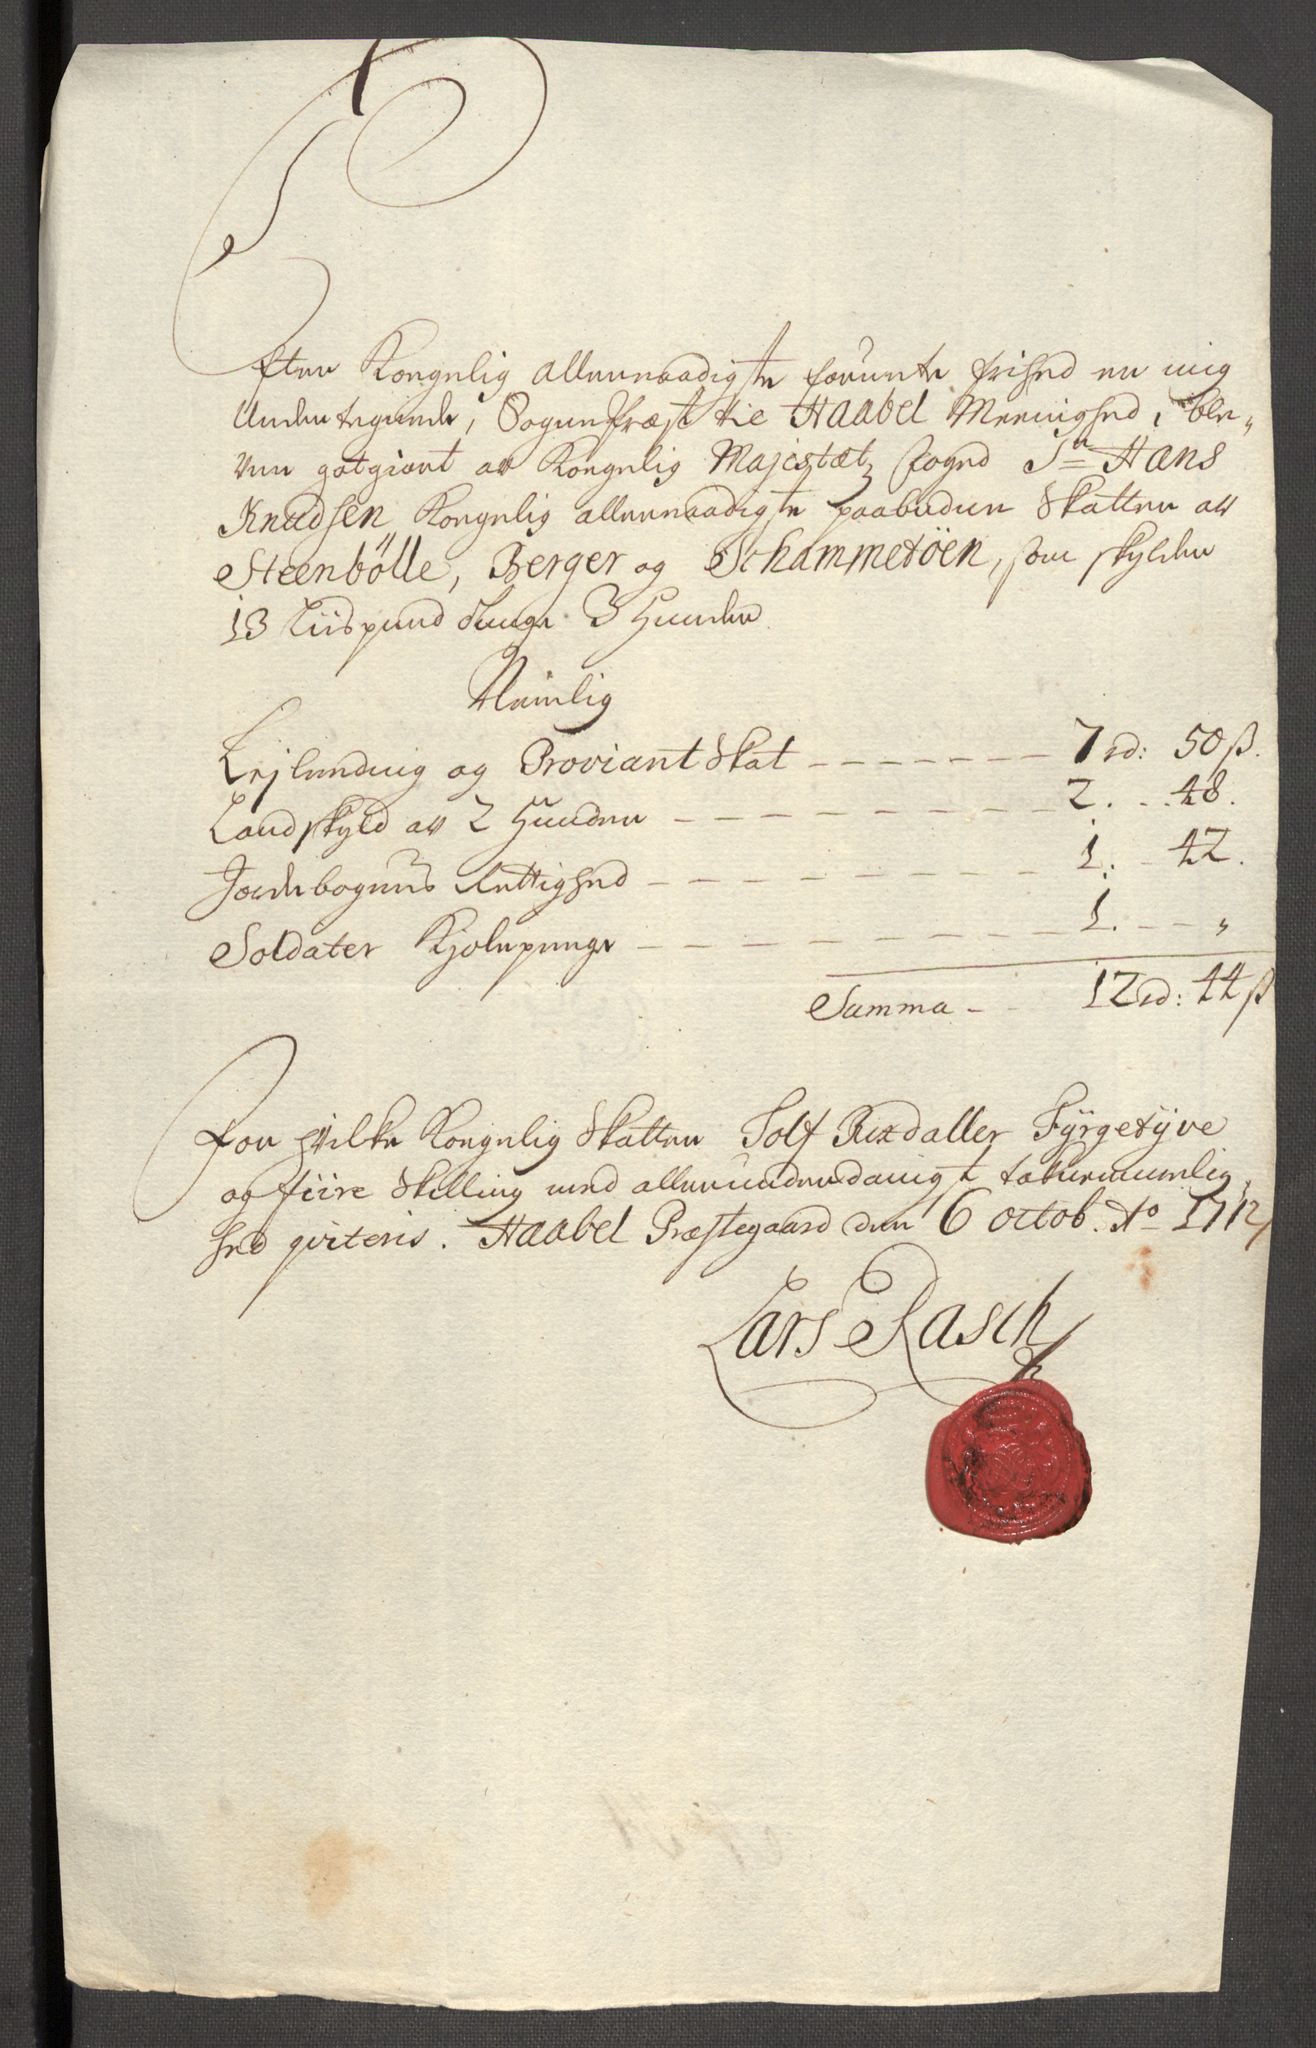 Efter Kongelig allernaadigste forunte frihed er mig
Undertegnede, Sognepræst til Haabel Meenighed, ble-
ven gotgiort av Kongelig Majestætz foged Sr Hans
Knudsen Kongelig allernaadigste paabudne Skatter av
Steenbölle, Berger og Schammetöen, som skylder
13 Liispund Tunge 3 Huuder
Nemlig
Lejlending og Proviant Skat 7 rd: 50 ß.
Landskyld av 2 Huuder 2. 48.
Jordebogens Rettighed 1. 42.
Soldater Kjolepenge 1. "
Summa 12 rd: 44 ß
For hvilke Kongelig Skatter Tolf Rixdaller Fyrgetyve
og fiire Skilling med allerunderdanigst taknemmelig-
hed qviteris. Haabel Præstegaard den 6 octob. Ao 1712
Lars Rasch